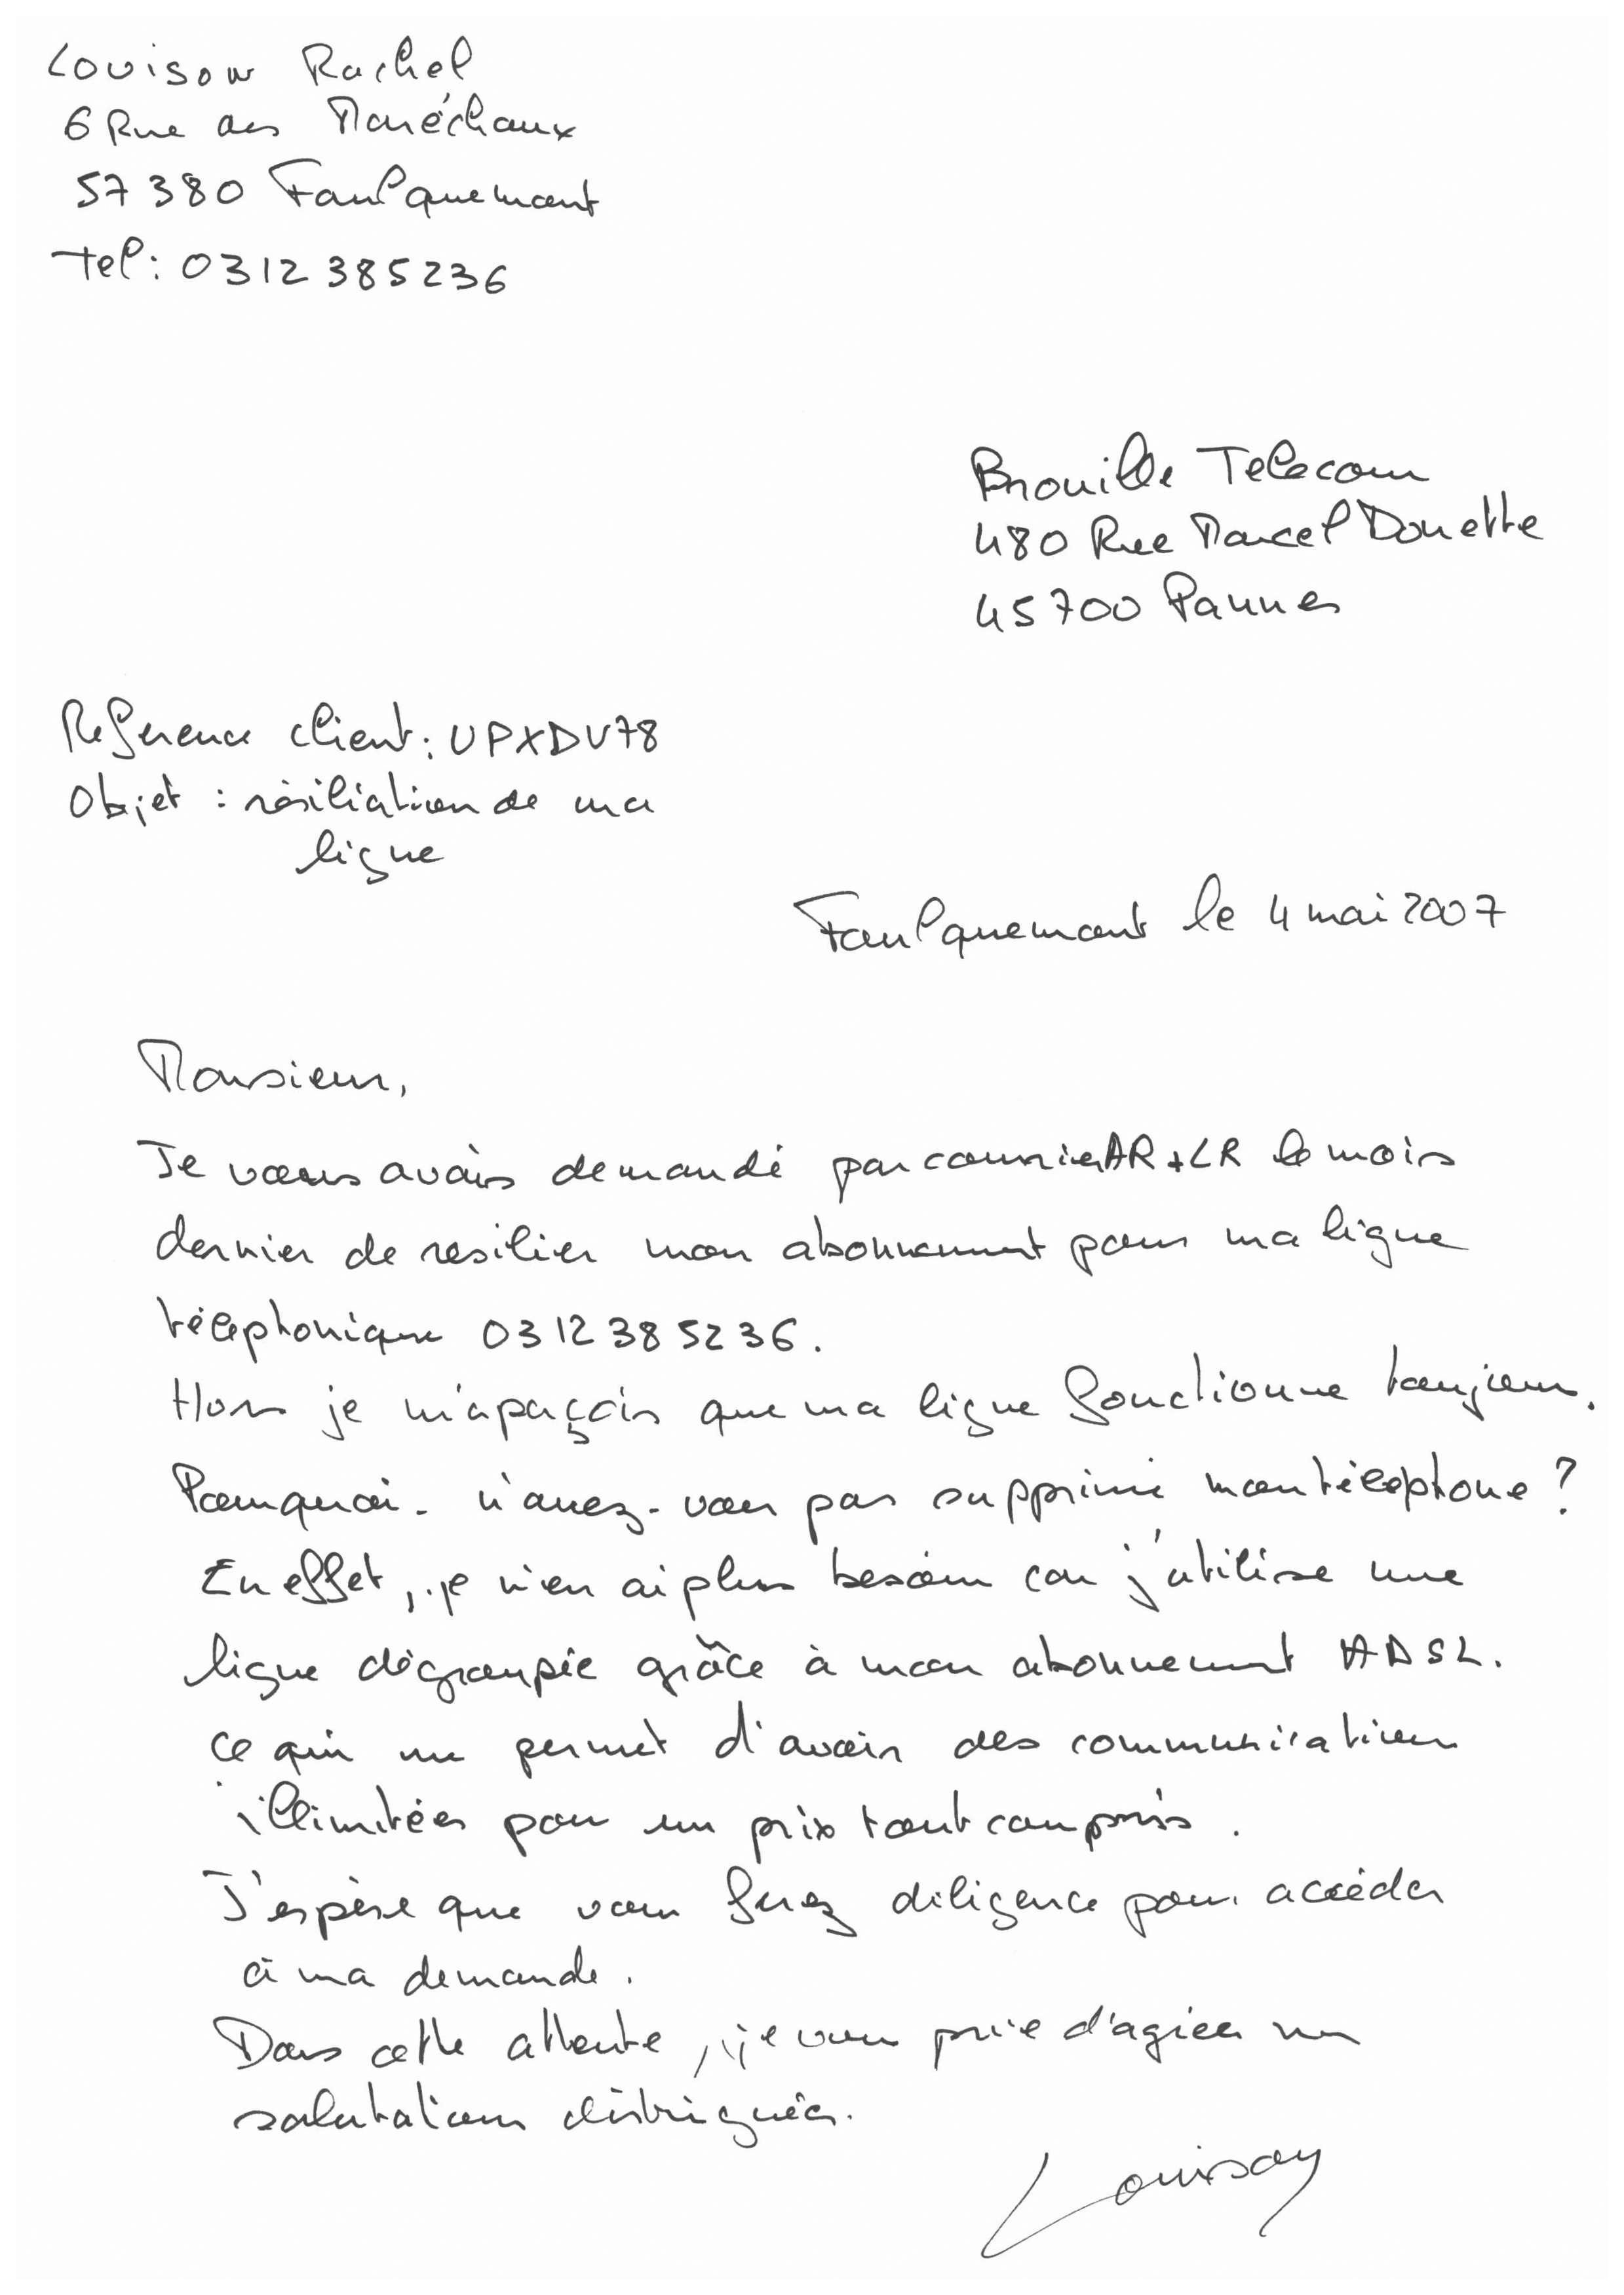 Louison Rachel
6 Rue des Maréchaux
57380 Faulquemont
Tel: 0312385236
Brouille Telecom
480 Rue Marcel Douette
45700 Pannes
Reference client: UPXDV78
Objet : résiliation de ma
ligne
Faulquemont le 4 mai 2007
Monsieur,
Je vous avais demandé par courrier AR+LR le mois
dernier de resilier mon abonnement pour ma ligne
téléphonique 0312385236.
Hors je m'aperçois que ma ligne fonctionne toujours.
Pourquoi n'avez-vous pas supprimé mon téléphone ?
En effet, je n'en ai plus besoin car j'utilise une
ligne dégroupée grâce à mon abonnement ADSL.
Ce qui me permet d'avoir des communications
illimitées pour un prix tout compris.
J'espère que vous ferez diligence pour accéder
à ma demande.
Dans cette attente, je vous prie d'agréer mes
salutations distinguées.
Louison